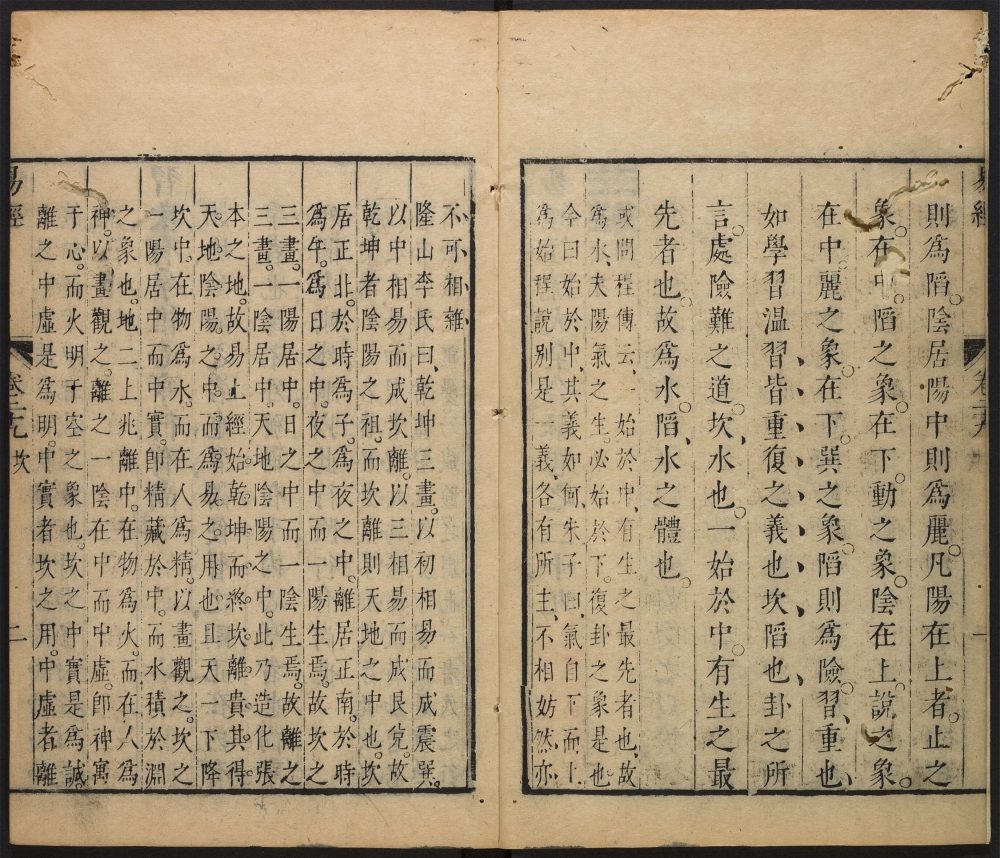 則爲䧟。陰居陽中則爲麗。凡陽在上者。止之
象。在中。䧟之象。在下。動之象。陰在上說之象。
在中。麗之象。在下巽之象。䧟則爲險。習、重也、
如學習温習皆重復之義也坎䧟也卦之所
言。處險難之道。坎、水也。一始於中有生之最
先者也。故爲水。䧟、水之體也。
或問程傳云、一始於中、有生之最先者也、故
爲水、夫陽氣之生。必始於下。復卦之象是也
今曰始於中、其義如何、朱子曰、氣自下而上
爲始程說别是一義、各有所主、不相妨然亦
不可相雜
隆山李氏曰、乾坤三畫。以初相易而成震巽。
以中相易而成坎離。以三相易而成艮兌。故
乾坤者陰陽之祖。而坎離則天地之中也。坎
居正北。於時爲子。爲夜之中。離居正南。於時
爲午。爲日之中。夜之中而一陽生焉。故坎之
三畫。一陽居中。日之中而一陰生焉。故離之
三畫。一陰居中。天地陰陽之中。此乃造化張
本之地。故易上經始乾坤。而終坎離。貴其得
天地陰陽之中。而爲易之用也。且天一下降
坎中。在物爲水。而在人爲精。以畫觀之。坎之
一陽居中而中實。卽精藏於中。而水積於淵
之象也。地二上兆離中。在物爲火。而在人爲
神。以畫觀之。離之一陰在中而中虛。卽神寓
于心。而火明于空之象也。坎之中實是爲誠。
離之中虛是爲明。中實者坎之用。中虛者離
易經
卷二十九 坎
二